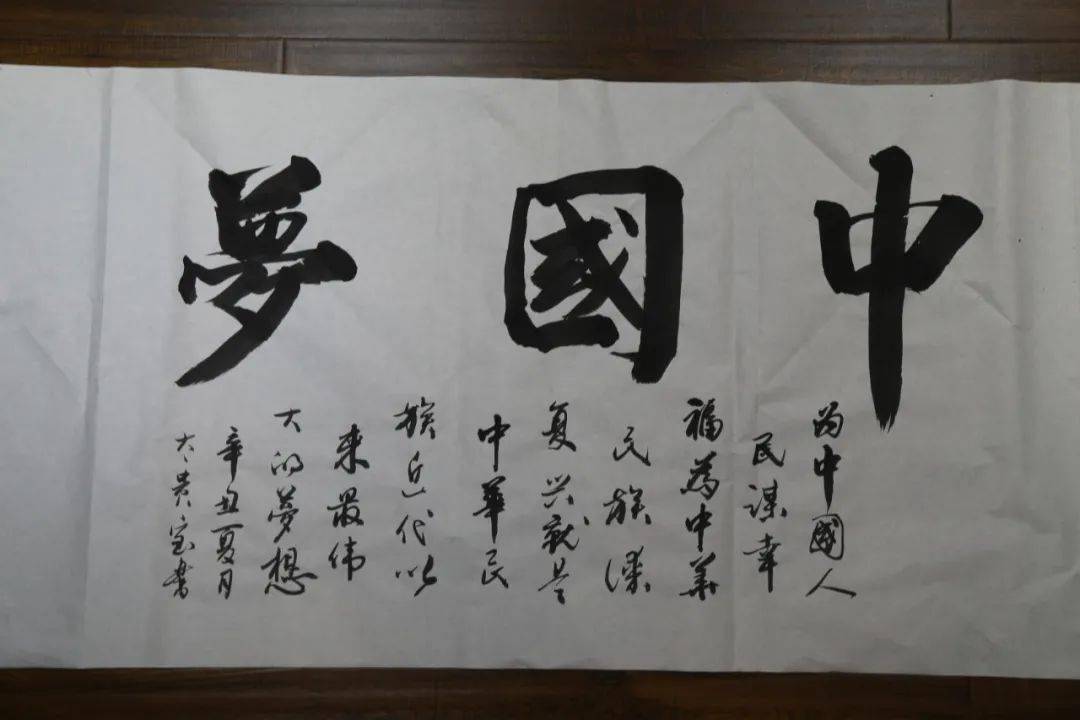 中國夢
为中國人
民謀幸
福為中華
民族谋
复兴就是
中華民
族近代以
来最伟
大的夢想
辛丑夏月
贵宝书